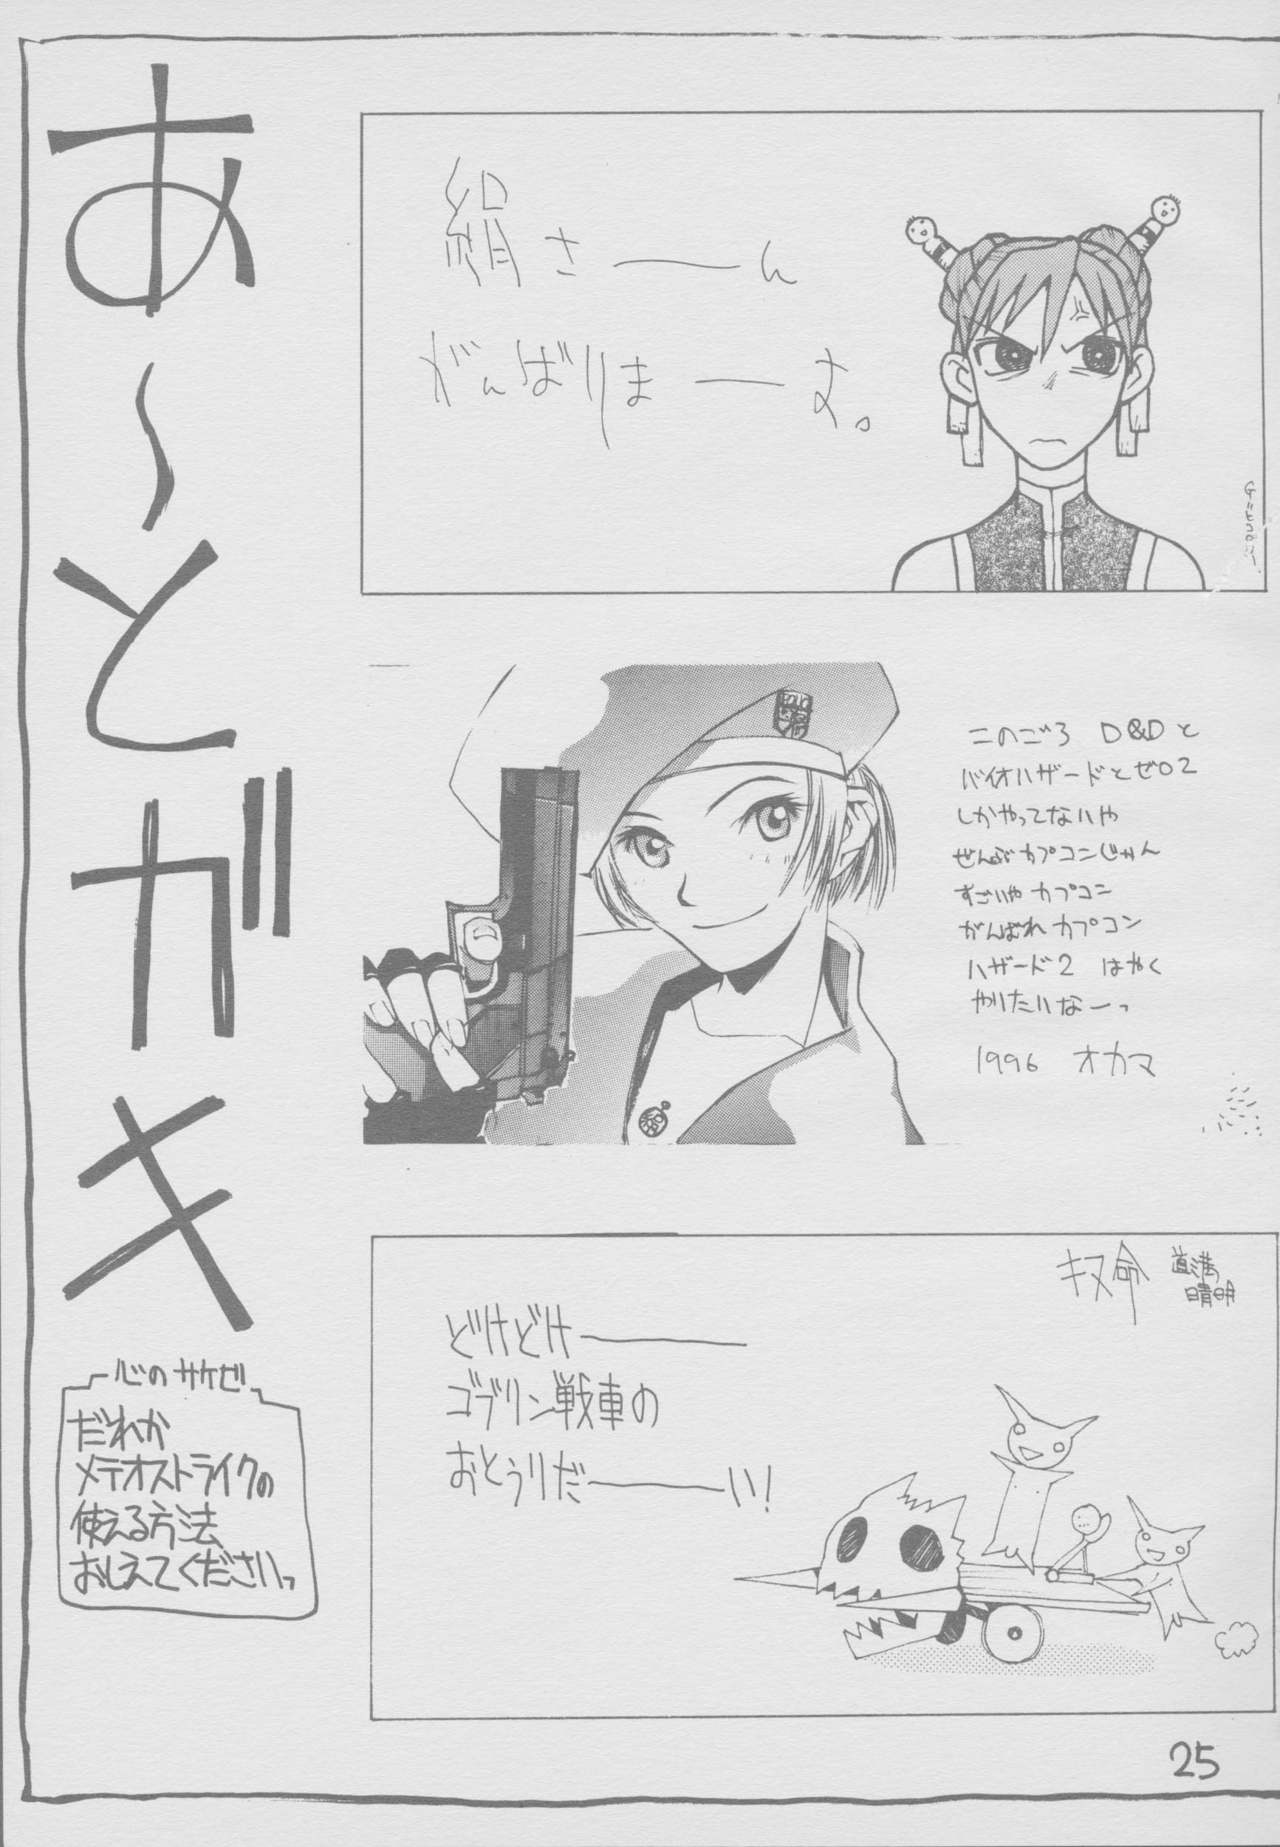 あ〜とがキ
絹さーーん
がんばりまーーす。
このごろ D&Dと
バイオハザードとゼロ2
しかやってないや
ぜんぶカプコンじゃん
すごいやカプコン
がんばれカプコン
ハザード2 はやく
やりたいなーっ
1996 オカマ
キヌ命 道満
晴明
どけどけーーー
ゴブリン戦車の
おとうりだーーい!
心のサケビ
だれか
メテオストライクの
使える方法
おしえてくださいっ
25